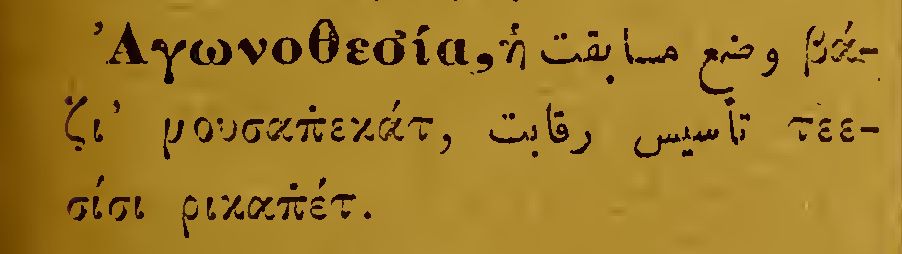 Ἀγωνοθεσία, ἡ وضع مسابقت βά-
ζι᾽ μουσαπ̇εκάτ, تأسيس رقابت τεε-
σίσι ρικαπ̇έτ.